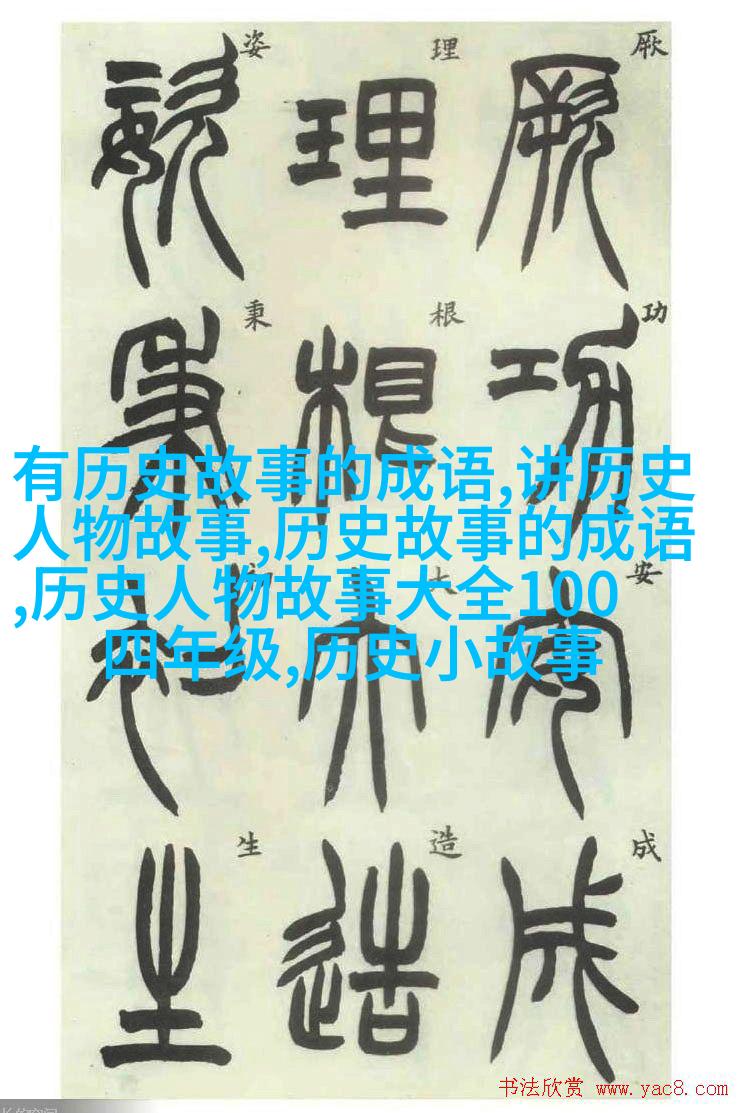 厥功安成
厥功安成
理根大造
理根大造
姿秉初生
姿秉生
有历史故事的成语,讲历史
人物故事,历史故事的成语
,历史人物故事大全100
四年级,历史小故事
书法欣赏 www.yac8.com